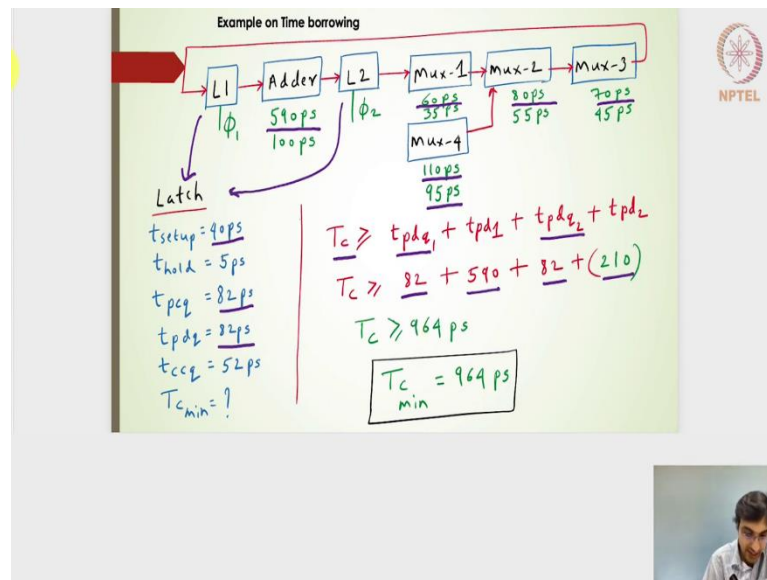 Example on Time borrowing
L1
Adder
L2
Mux-1
Mux-2
Mux-3
ϕ1
590ps
100ps
ϕ2
60ps
35ps
80ps
55ps
70ps
45ps
Mux-4
110ps
95ps
NPTEL
Latch
tsetup = 40ps
thold = 5ps
tpcq = 82ps
tpdq = 82ps
tccq = 52ps
Tcmin = ?
Tc ⩾ tpdq1 + tpd1 + tpdq2 + tpd2
Tc ⩾ 82 + 590 + 82 + (210)
Tc ⩾ 964 ps
Tc min = 964 ps